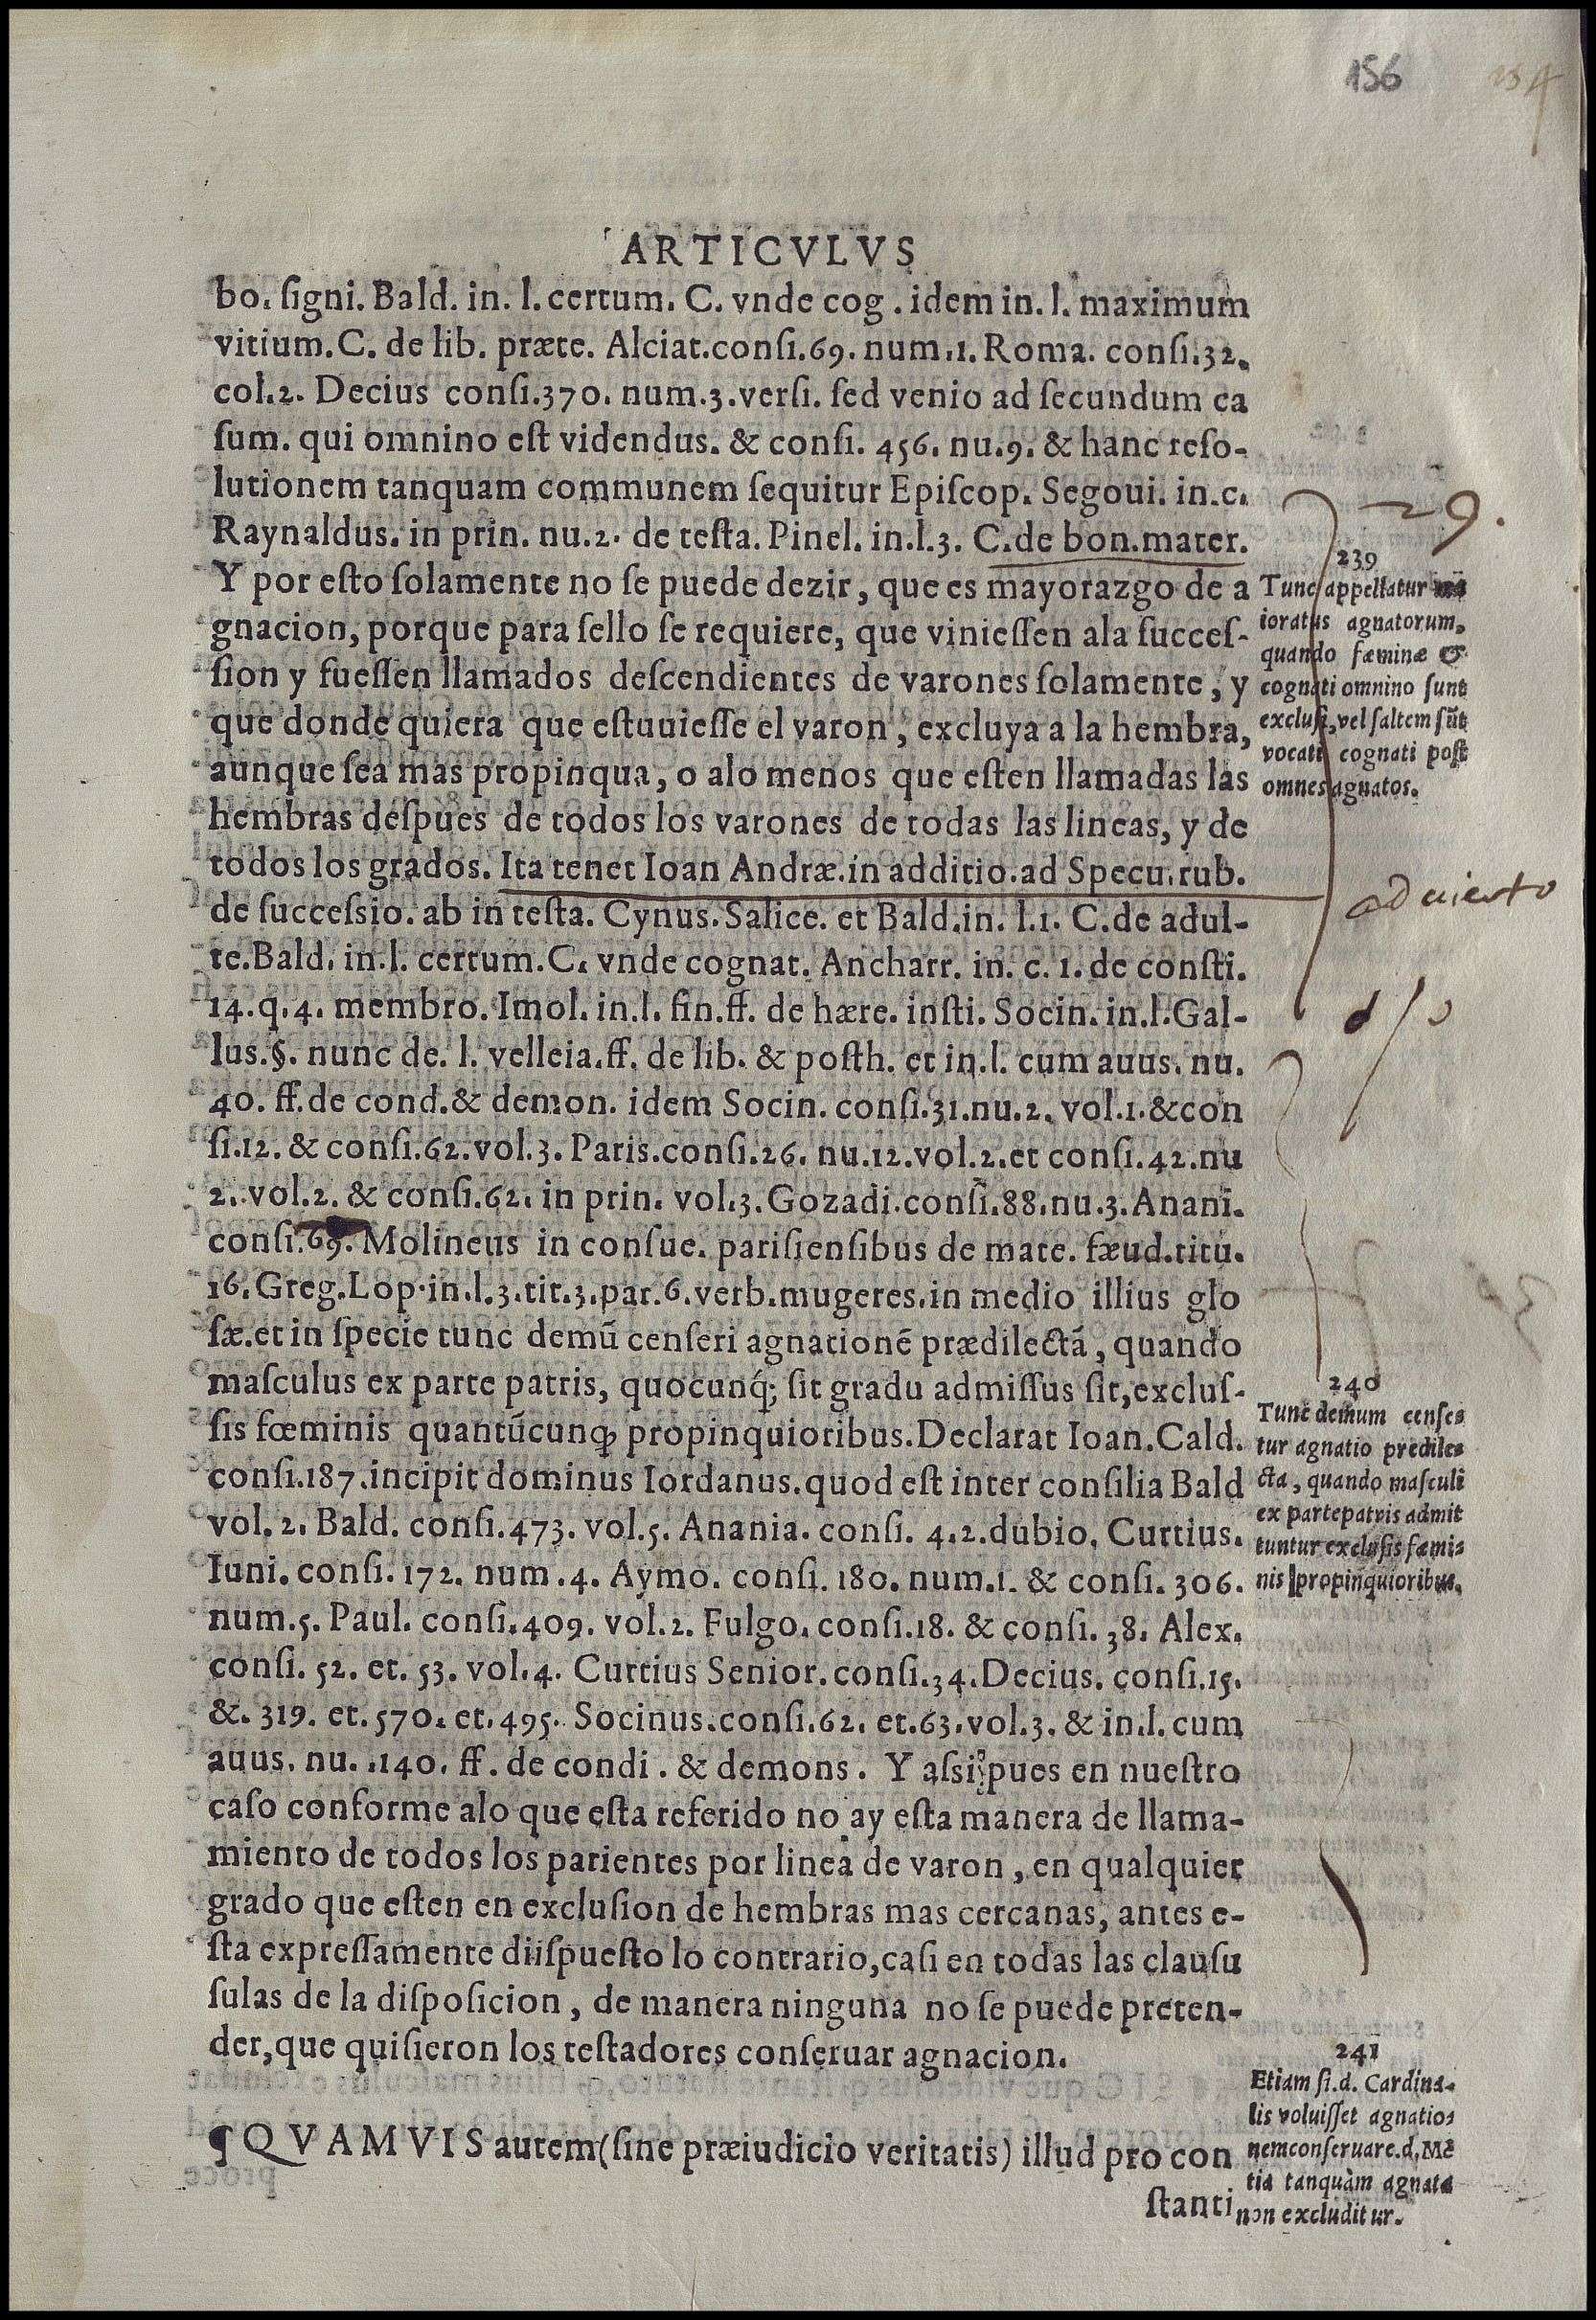 156
ARTICVLVS
bo. ſigni. Bald. in. l. certum. C. vnde cog. idem in. l. maximum
vitium. C. de lib. præte. Alciat. conſi. 69. num. 1. Roma. conſi. 32.
col. 2. Decius conſi. 370. num. 3. verſi. ſed venio ad ſecundum ca
ſum. qui omnino eſt videndus. & conſi. 456. nu. 9. & hanc reſo-
lutionem tanquam communem ſequitur Epiſcop. Segoui. in. c.
Raynaldus. in prin. nu. 2. de teſta. Pinel. in. l. 3. C. de bon. mater.
Y por eſto ſolamente no ſe puede dezir, que es mayorazgo de a
gnacion, porque para ſello ſe requiere, que vinieſſen ala ſucceſ-
ſion y fueſſen llamados deſcendientes de varones ſolamente, y
que donde quiera que eſtuuieſſe el varon, excluya a la hembra,
aunque ſea mas propinqua, o alo menos que eſten llamadas las
hembras deſpues de todos los varones de todas las lineas, y de
todos los grados. Ita tenet Ioan Andræ. in additio. ad Specu. rub.
de ſucceſsio. ab in teſta. Cynus. Salice. et Bald. in. l. 1. C. de adul-
te. Bald. in. l. certum. C. vnde cognat. Ancharr. in. c. 1. de conſti.
14. q. 4. membro. Imol. in. l. fin. ff. de hære. inſti. Socin. in. l. Gal-
lus. §. nunc de. l. velleia. ff. de lib. & poſth. et in. l. cum auus. nu.
40. ff. de cond. & demon. idem Socin. conſi. 31. nu. 2. vol. 1. & con
ſi. 12. & conſi. 62. vol. 3. Paris. conſi. 26. nu. 12. vol. 2. et conſi. 42. nu
2. vol. 2. & conſi. 62. in prin. vol. 3. Gozadi. conſi. 88. nu. 3. Anani.
conſi. 69. Molineus in conſue. pariſienſibus de mate. fæud. titu.
16. Greg. Lop. in. l. 3. tit. 3. par. 6. verb. mugeres. in medio illius glo
ſæ. et in ſpecie tunc demũ cenſeri agnationẽ prædilectã, quando
maſculus ex parte patris, quocunq; ſit gradu admiſſus ſit, excluſ-
ſis fœminis quantũcunq; propinquioribus. Declarat Ioan. Cald.
conſi. 187. incipit dominus Iordanus. quod eſt inter conſilia Bald
vol. 2. Bald. conſi. 473. vol. 5. Anania. conſi. 4. 2. dubio. Curtius.
Iuni. conſi. 172. num. 4. Aymo. conſi. 180. num. 1. & conſi. 306.
num. 5. Paul. conſi. 409. vol. 2. Fulgo. conſi. 18. & conſi. 38. Alex.
conſi. 52. et. 53. vol. 4. Curtius Senior. conſi. 34. Decius. conſi. 15.
&. 319. et. 570. et. 495. Socinus. conſi. 62. et. 63. vol. 3. & in. l. cum
auus. nu. 140. ff. de condi. & demons. Y aſsi pues en nueſtro
caſo conforme alo que eſta referido no ay eſta manera de llama-
miento de todos los parientes por linea de varon, en qualquier
grado que eſten en excluſion de hembras mas cercanas, antes e-
ſta expreſſamente diiſpueſto lo contrario, caſi en todas las clauſu
ſulas de la diſpoſicion, de manera ninguna no ſe puede preten-
der, que quiſieron los teſtadores conſeruar agnacion.
¶ QVAMVIS autem (ſine præiudicio veritatis) illud pro con
ſtanti
29.
239
Tunc appellatur ma
ioratus agnatorum,
quando fæminæ &
cognati omnino ſunt
excluſi, vel ſaltem ſũt
vocati cognati poſt
omnes agnatos.
240
Tunc demum cenſe-
tur agnatio predile-
cta, quando maſculi
ex parte patris admit
tuntur excluſis fæmi-
nis propinquioribus.
241
Etiam ſi. d. Cardina-
lis voluiſſet agnatio-
nem conſeruare. d. Mẽ
tia tanquàm agnata
non excluditur.